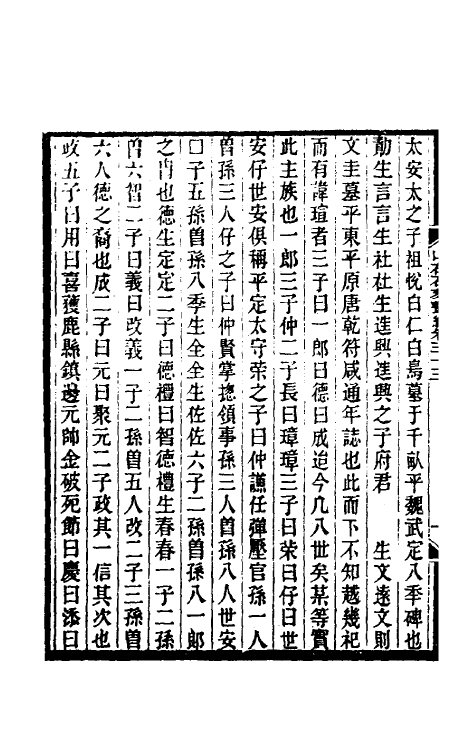 太安太之子祖悅白仁白鳥墓于千畝平魏武定八季碑也
勣生言言生社社生進興進興之子府君　　生文遠文則
文圭墓平東平原唐乾符咸通年誌也此而下不知越幾祀
而有諱瑄者三子曰一郎曰德曰成迨今几八世矣某等實
此主族也一郎三子仲二子長曰璋璋三子曰荣曰仔曰世
安仔世安俱稱平定太守荣之子曰仲議任彈壓官孫一人
曾孫三人仔之子曰仲賢掌摠領事孫三人曾孫八人世安
口子五孫曾孫八季生全全生佐佐六子二孫曾孫八一郎
之冑也德生定定二子曰德禮曰智德禮生春春一子二孫
曾六智二子曰義曰改義一子二孫曾五人改二子三孫
六人德之裔也成二子曰元曰聚元二子政其一信其次也
政五子曰用曰喜獲鹿縣鎮邊元帥金破死節曰慶曰添曰